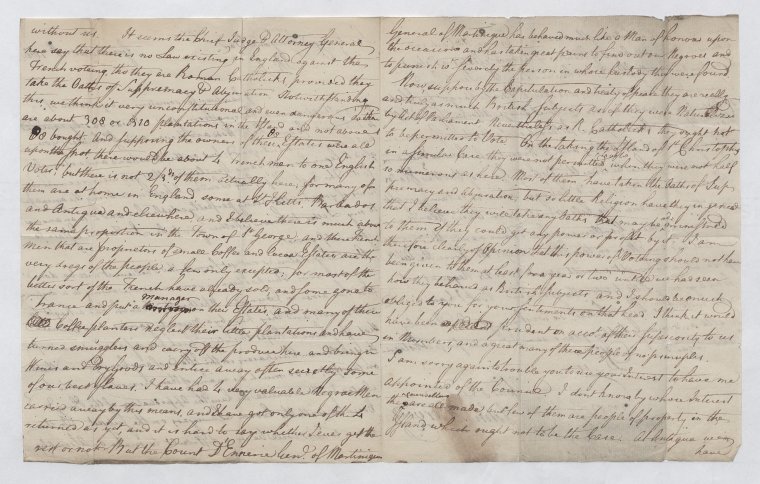 without us. It seems the Chief Judge & Attorney General
here say that there is no Law existing in England against the
French voting tho they are Roman Catholicks provided they
take the Oaths of Suppremacy & Abjuration Notwithstanding
this, we think it very unconstitutional and even dangerous as there
are about 308 or 310 plantations in the Island and not above
bought and supposing the owners of these Estates were all
upon the spot there would be about 4 French men to one English
Voter, but there is not 2/3ds of them actually here, for many of
them are at home in England some at St Kitts, Barbados
and Antigua and elsewhere and I believe there is much about
the same proportion in the Town of St George, and these French
Men that are proprietors of small Coffee and Cocoa Estates are the
very dregs of the people a few only excepted; for most of the
better sort of the French have already sold, and some gone to
France and put a manager on their Estates, and many of these
Coffee planters neglect their little plantations and have
turned smugglers and carry off the produce here and bring in
Wines and Dry Goods and entice away often secretly some
of our best slaves. I have had 4 very valuable Negroe Men
carried away by this means, and I have got only one of them
returned as yet and it is hard to say whether I ever get the
rest or not But the Count D'Ennerie Genl. of Martinique
General of Martinique has behaved much like a Man of honour upon
the occasion and has taken great pains to find out our Negroes and
to punish severely the person in whose custody they were found
Now suppose by the Capitulation and treaty of peace they are really
and truly as much British subjects as if they were Naturalized
by Act of Parliament Nevertheless as R. Catholicks they ought not
to be permitted to Vote. On the taking the Island of St Christophers
in a similar Case they were not permitted when they were not half
so numerous as here Most of them have taken the Oaths of Sup-
premacy and Abjuration, but so little Religion have they in general
that I believe they will take any Oaths that may be administred
to them if they could get any power or profit by it. I am
therefore clearly of Opinion that this power of Voting should not have
been given to them at least for a year or two untill we had seen
how they behaved as British Subjects and I should be much
obliged to you for your sentiments on that head I think it would
have been prudent on acct of their superiority to us
in Numbers, and a great many of them people of no principles.
I am sorry again to trouble you to use your Interest to have me
appointed of the Council I dont know by whose interest
the councellors are all made but few of them are people of property in the
Island which ought not to be the Case. At Antigua we
have